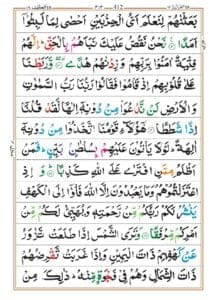 412
بَعَثْنٰهُمْ لِنَعْلَمَ اَىُّ الْحِزْبَيْنِ اَحْصٰى لِمَا لَبِثُوْۤا
اَمَدًا نَحْنُ نَقُصُّ عَلَيْكَ نَبَاَهُمْ بِالْحَقِّ اِنَّهُمْ
فِتْيَةٌ اٰمَنُوْا بِرَبِّهِمْ وَزِدْنٰهُمْ هُدًى وَّرَبَطْنَا
عَلٰى قُلُوْبِهِمْ اِذْ قَامُوْا فَقَالُوْا رَبُّنَا رَبُّ السَّمٰوٰتِ
وَالْاَرْضِ لَنْ نَّدْعُوَا۟ مِنْ دُوْنِهٖۤ اِلٰهًا لَّقَدْ قُلْنَاۤ
اِذًا شَطَطًا هٰٓؤُلَآءِ قَوْمُنَا اتَّخَذُوْا مِنْ دُوْنِهٖۤ
اٰلِهَةً لَوْلَا يَاْتُوْنَ عَلَيْهِمْ بِسُلْطٰنٍ بَيِّنٍ فَمَنْ
اَظْلَمُ مِمَّنِ افْتَرٰى عَلَى اللّٰهِ كَذِبًا وَاِذِ
اعْتَزَلْتُمُوْهُمْ وَمَا يَعْبُدُوْنَ اِلَّا اللّٰهَ فَاْوٗۤا اِلَى الْكَهْفِ
يَنْشُرْ لَكُمْ رَبُّكُمْ مِّنْ رَّحْمَتِهٖ وَيُهَيِّئْ لَكُمْ مِّنْ
اَمْرِكُمْ مِّرْفَقًا وَتَرَى الشَّمْسَ اِذَا طَلَعَتْ تَّزٰوَرُ
عَنْ كَهْفِهِمْ ذَاتَ الْيَمِيْنِ وَاِذَا غَرَبَتْ تَّقْرِضُهُمْ
ذَاتَ الشِّمَالِ وَهُمْ فِىْ فَجْوَةٍ مِّنْهُ ذٰلِكَ مِنْ